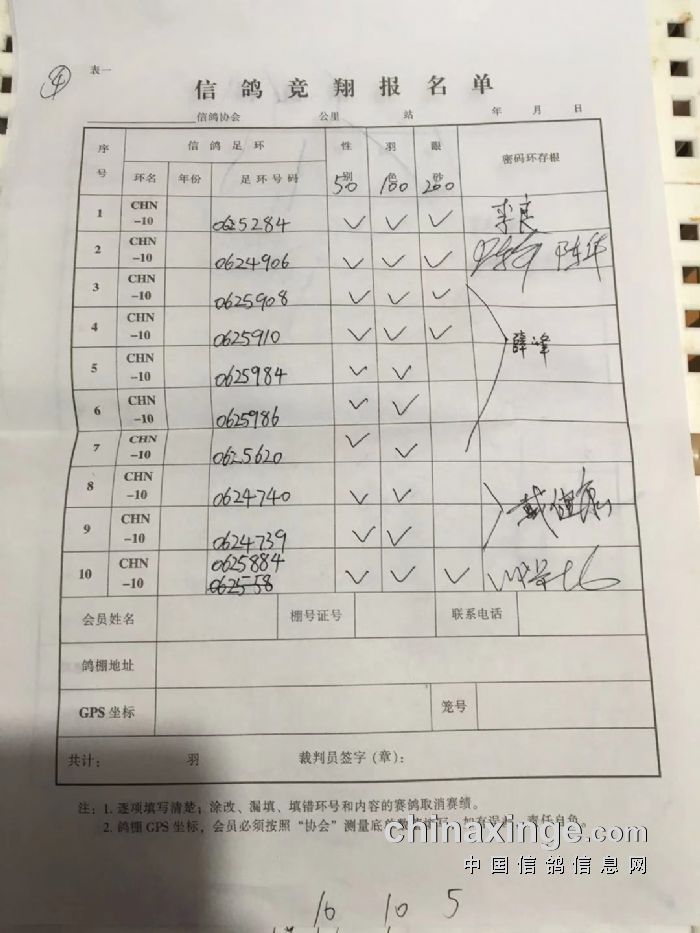 ④ 表一
信鸽竞翔报名单
信鸽协会 公里 站 年 月 日
序号 信鸽足环 性别 羽色 眼砂 密码环存根
环名 年份 足环号码 50 100 200
1 CHN-10 0625284 ✓ ✓ ✓ 李良
2 CHN-10 0624906 ✓ ✓ ✓ 陈华
3 CHN-10 0625908 ✓ ✓ ✓
4 CHN-10 0625910 ✓ ✓ ✓ 薛峰
5 CHN-10 0625984 ✓ ✓
6 CHN-10 0625986 ✓ ✓
7 CHN-10 0625620 ✓ ✓
8 CHN-10 0624740 ✓ ✓ 戴健康
9 CHN-10 0624739 ✓ ✓
10 CHN-10 0625884 ✓ ✓ ✓
062558
会员姓名 棚号证号 联系电话
鸽棚地址
GPS 坐标 笼号
共计： 羽 裁判员签字（章）：
注：1. 逐项填写清楚；涂改、漏填、填错环号和内容的赛鸽取消赛绩。
2. 鸽棚 GPS 坐标，会员必须按照“协会”测量底单数据填写，如有误差，责任自负。
chinaxinge.com
中国信鸽信息网
10 10 5